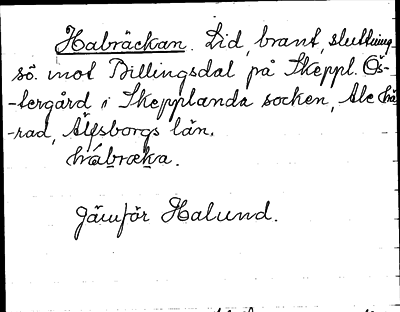 Habräckan. Lid, brant, sluttning
sö. mot Billingsdal på Skeppl. Ös-
-tergård i Skepplanda socken, Ale hä
-rad, Älfsborgs län.
hrábræka.
Jämför Halund.